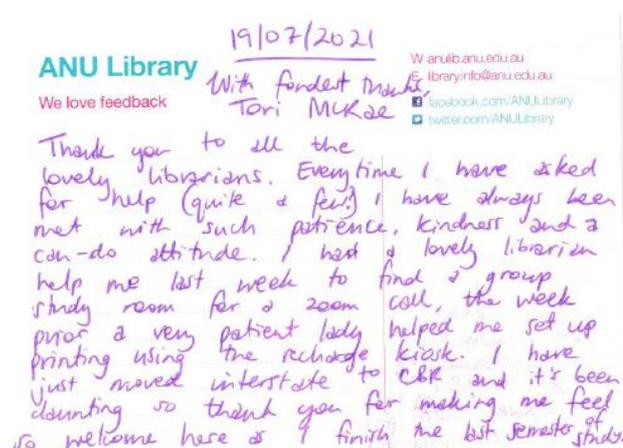 19/07/2021
ANU Library
We love feedback
W anulib.anu.edu.au
E library.info@anu.edu.au
facebook.com/ANULibrary
twitter.com/ANULibrary
With fondest thanks,
Tori McRae
Thank you to all the
lovely librarians. Everytime I have asked
for help (quite a few!) I have always been
met with such patience, kindness and a
can-do attitude. I had a lovely librarian
help me last week to find a group
study room for a zoom call, the week
prior a very patient lady helped me set up
printing using the recharge kiosk. I have
just moved interstate to CBR and it's been
daunting so thank you for making me feel
so welcome here as I finish me last semester of study